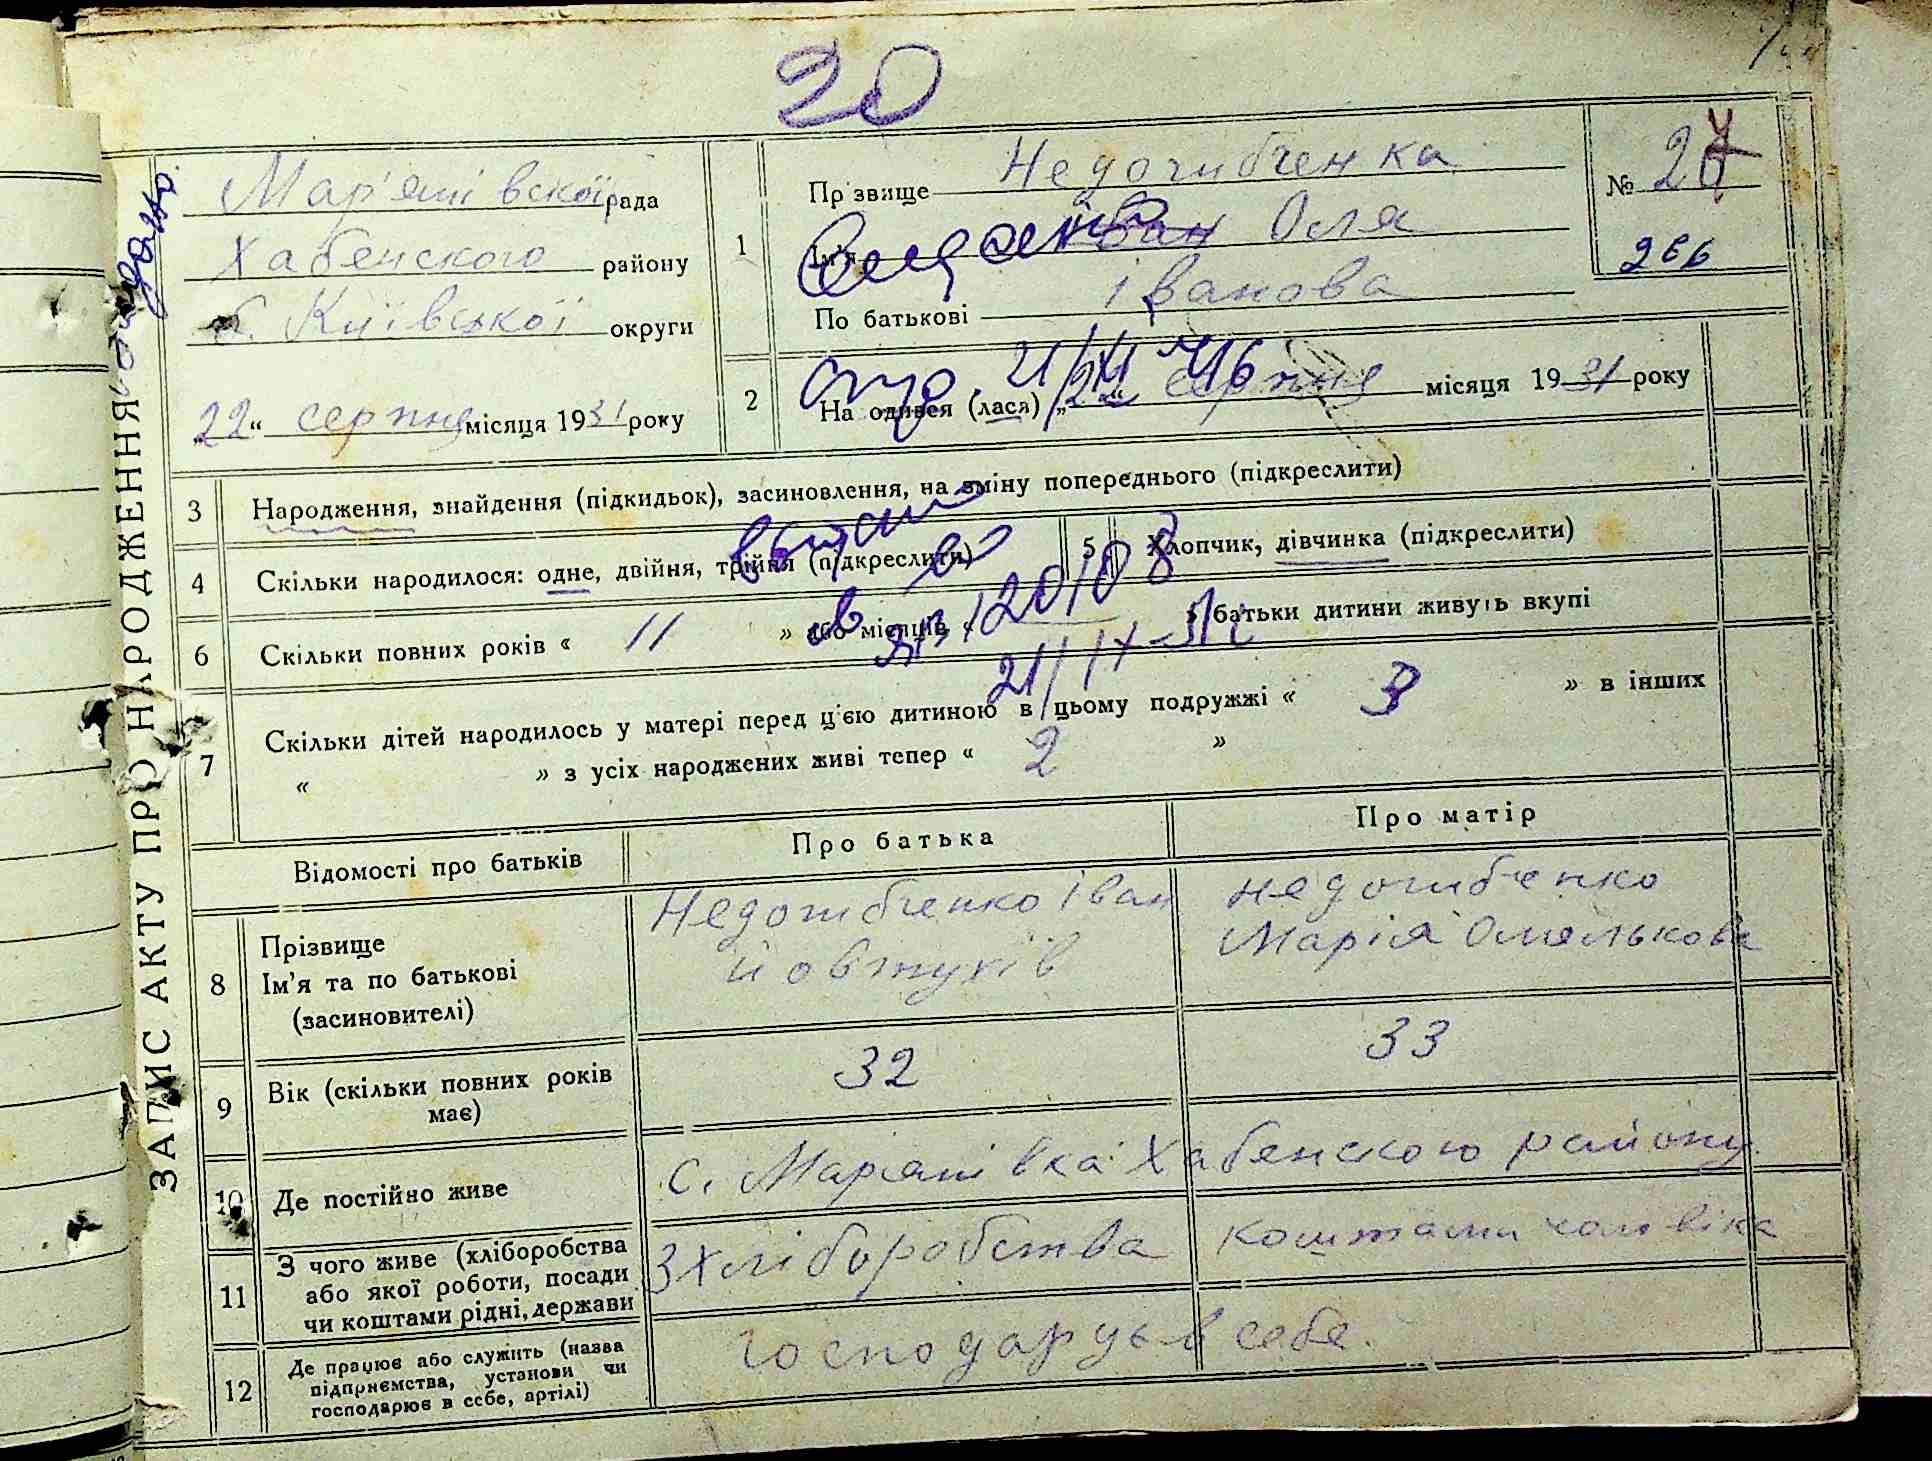 20
ЗАПИС АКТУ ПРО НАРОДЖЕННЯ
Мар'янівскої рада
Хабенского району
б. Київської округи
„22“ серпня місяця 1931 року
1
Прізвище Недогибченка
Ім'я Оля
По батькові Іванова
№ 2
266
2
На одився (лася) „22“ серпня місяця 1931 року
21/XI 46
3
Народження, знайдення (підкидьок), засиновлення, на зміну попереднього (підкреслити)
4
Скільки народилося: одне, двійня, трійня (підкреслити)
5
Хлопчик, дівчинка (підкреслити)
6
Скільки повних років « 11 » або місяців « » батьки дитини живуть вкупі
7
Скільки дітей народилось у матері перед цією дитиною в цьому подружжі « 3 » в інших
« » з усіх народжених живі тепер « 2 »
Відомості про батьків
Про батька
Про матір
8
Прізвище
Ім'я та по батькові
(засиновителі)
Недогибченко Іван
Йовтухів
Недогибченко
Марія Омелькова
9
Вік (скільки повних років
має)
32
33
10
Де постійно живе
с. Мар'янівка Хабенского району
11
З чого живе (хліборобства
або якої роботи, посади
чи коштами рідні, держави
З хліборобства
коштами чоловіка
12
Де працює або служить (назва
підприємства, установи чи
господарює в себе, артілі)
господарує в себе.